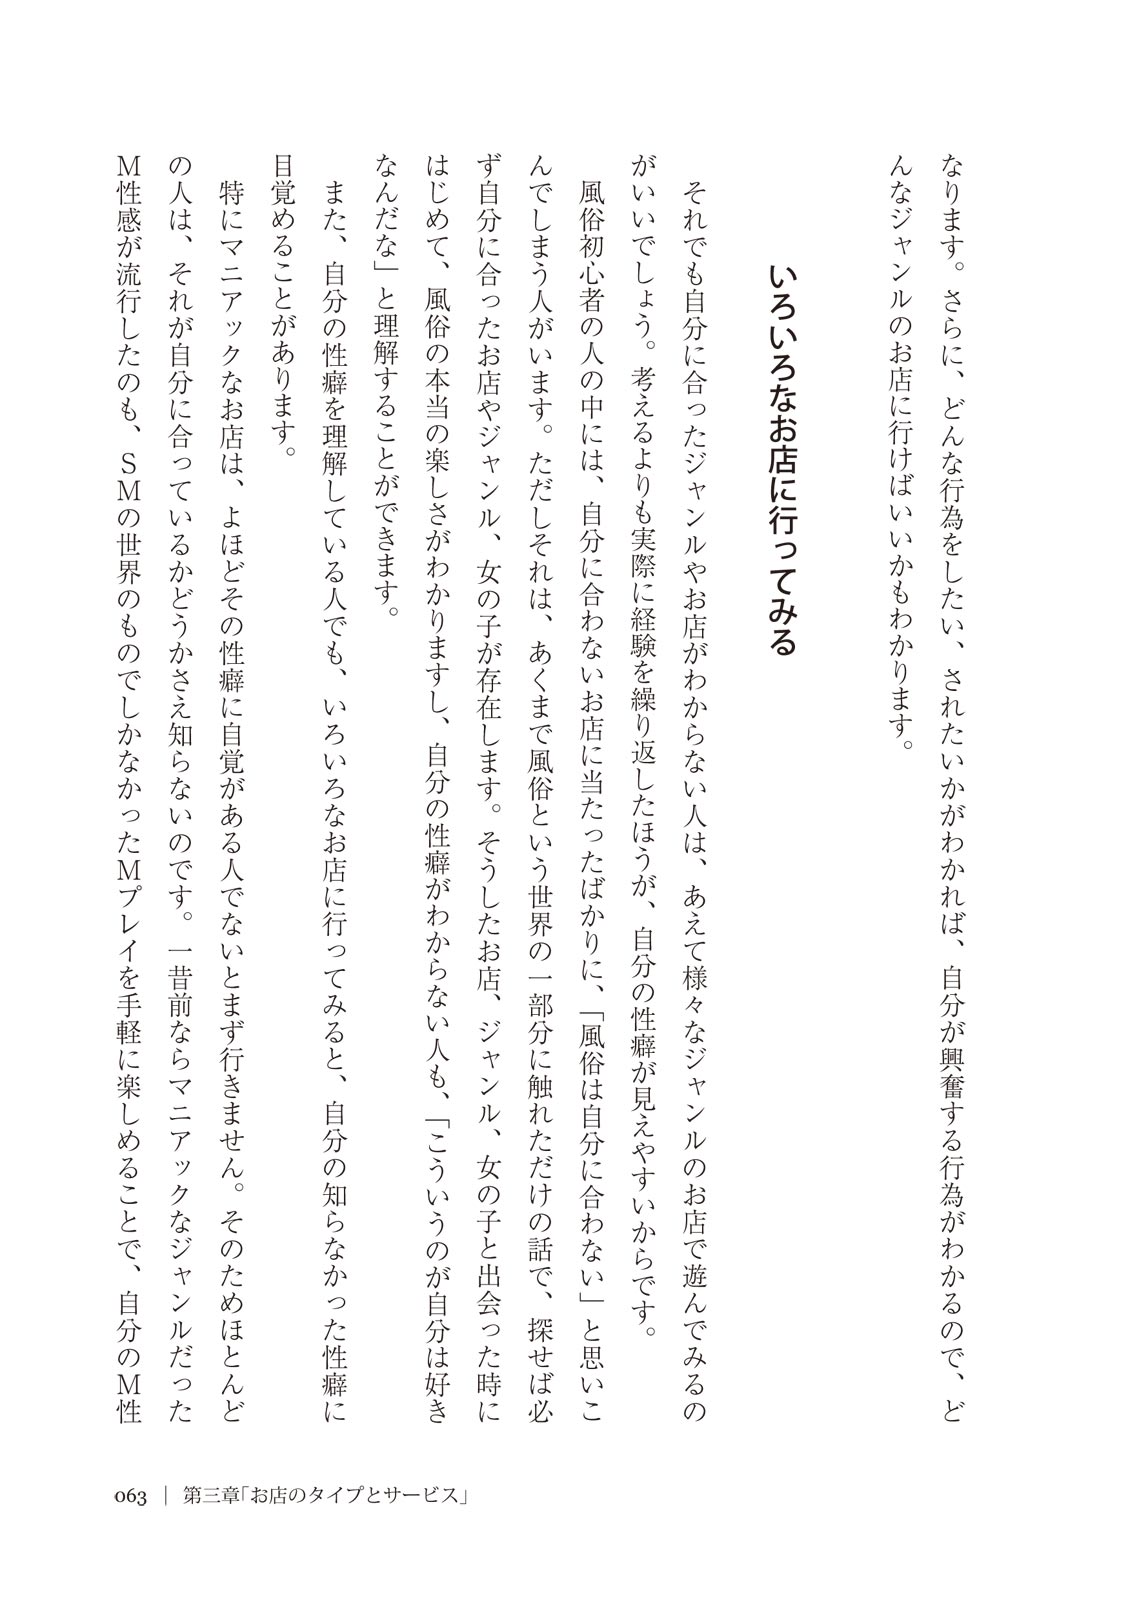 なります。さらに、どんな行為をしたい、されたいかがわかれば、自分が興奮する行為がわかるので、ど
んなジャンルのお店に行けばいいかもわかります。
いろいろなお店に行ってみる
それでも自分に合ったジャンルやお店がわからない人は、あえて様々なジャンルのお店で遊んでみるの
がいいでしょう。考えるよりも実際に経験を繰り返したほうが、自分の性癖が見えやすいからです。
風俗初心者の人の中には、自分に合わないお店に当たったばかりに、「風俗は自分に合わない」と思いこ
んでしまう人がいます。ただしそれは、あくまで風俗という世界の一部分に触れただけの話で、探せば必
ず自分に合ったお店やジャンル、女の子が存在します。そうしたお店、ジャンル、女の子と出会った時に
はじめて、風俗の本当の楽しさがわかりますし、自分の性癖がわからない人も、「こういうのが自分は好き
なんだな」と理解することができます。
また、自分の性癖を理解している人でも、いろいろなお店に行ってみると、自分の知らなかった性癖に
目覚めることがあります。
特にマニアックなお店は、よほどその性癖に自覚がある人でないとまず行きません。そのためほとんど
の人は、それが自分に合っているかどうかさえ知らないのです。一昔前ならマニアックなジャンルだった
M性感が流行したのも、SMの世界のものでしかなかったMプレイを手軽に楽しめることで、自分のM性
063 | 第三章「お店のタイプとサービス」